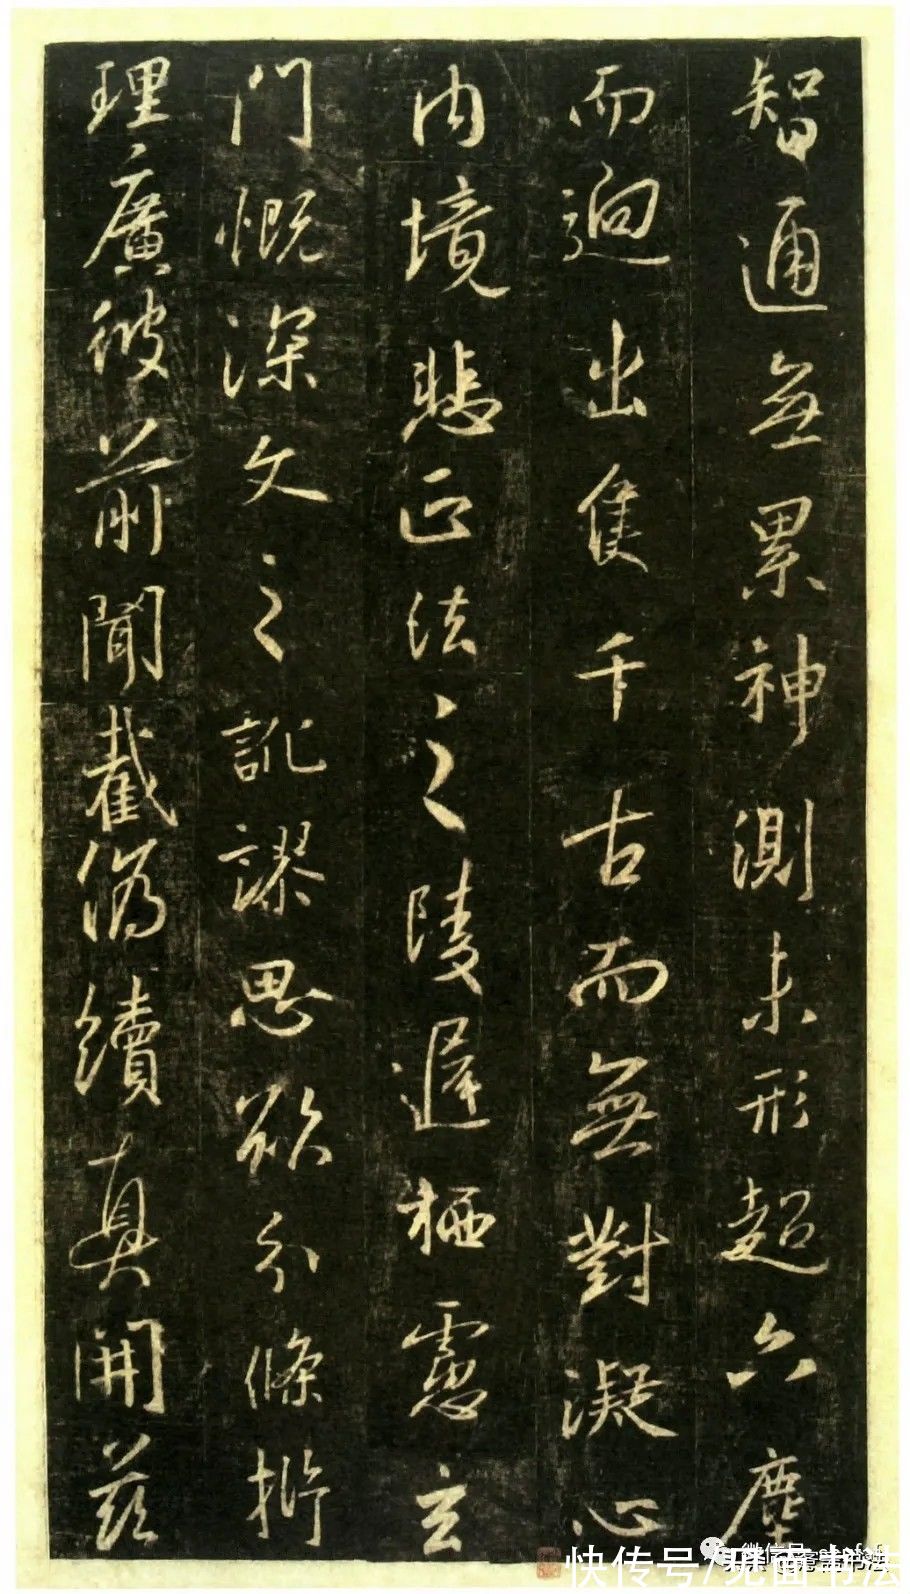 智通無累神測未形超六塵
而迥出隻千古而無對凝心
內境悲正法之陵遲栖慮玄
門慨深文之訛謬思欲分條析
理廣彼前聞截偽續真開茲
快传号/